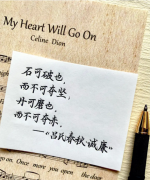 My Heart Will Go On
Celine Dion
石可破也，
而不可夺坚，
丹可磨也，
而不可夺赤。
——《吕氏春秋·诚廉》
go on. Once more you open the door